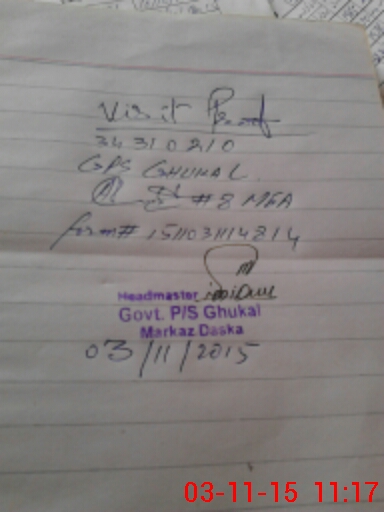 Visit Proof
34310210
GPS GHUKAL
# 8 MEA
form# 151103114814
Headmaster
Govt. P/S Ghukal
Markaz Daska
03/11/2015
03-11-15 11:17